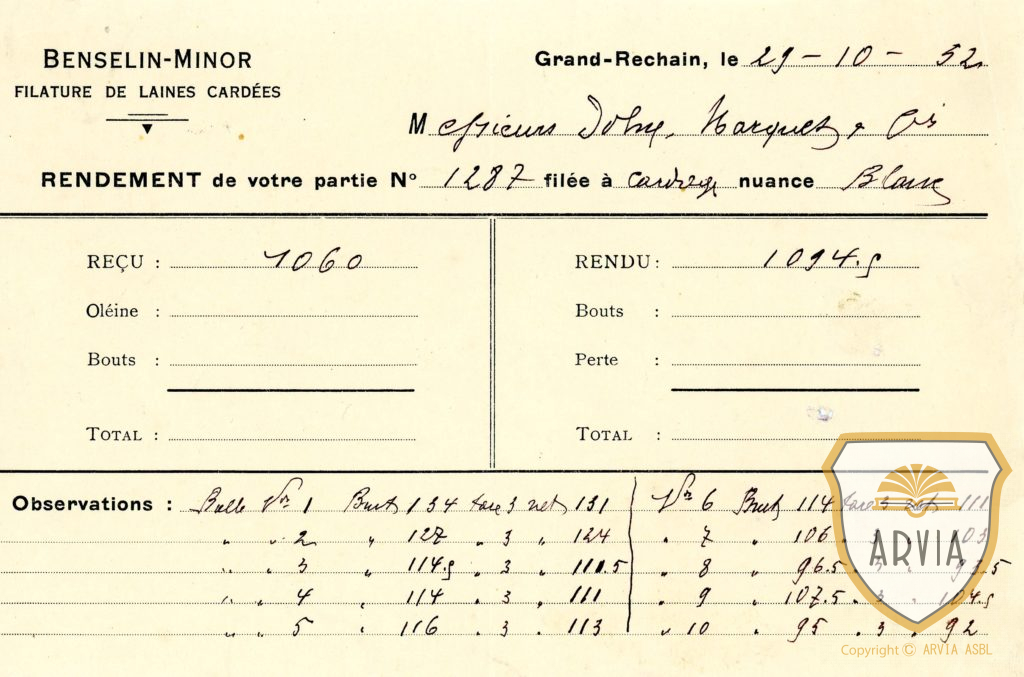 BENSELIN-MINOR
FILATURE DE LAINES CARDÉES
Grand-Rechain, le 29 - 10 - 52
Messieurs Marquet &
RENDEMENT de votre partie N° 1287 filée à nuance Blanc
REÇU : 1060
Oléine :
Bouts :
TOTAL :
RENDU : 1094.5
Bouts :
Perte :
TOTAL :
Observations : Balle Nr 1 Brut 134 tare 3 net 131
" " 2 " 127 " 3 " 124
" " 3 " 114.5 " 3 " 111.5
" " 4 " 114 " 3 " 111
" " 5 " 116 " 3 " 113
Nr 6 Brut 114 tare 3 net 111
" 7 " 106 " 3 " 103
" 8 " 96.5 " 3 " 93.5
" 9 " 107.5 " 3 " 104.5
" 10 " 95 " 3 " 92
ARVIA
Copyright © ARVIA ASBL